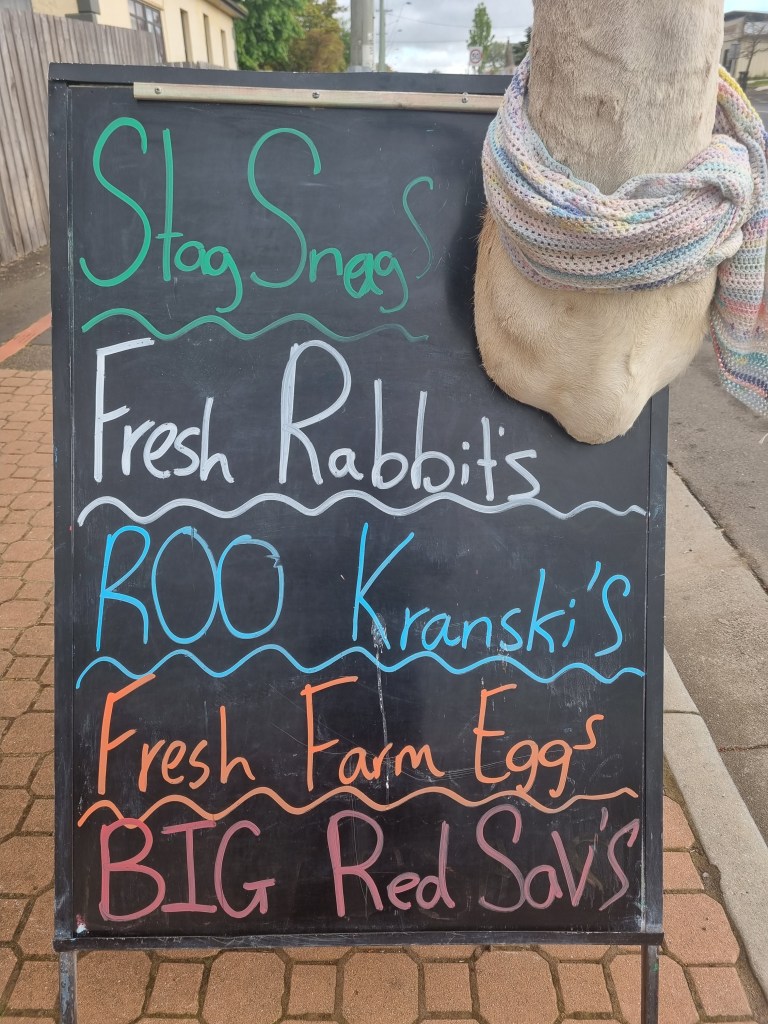 Stag Snags
Fresh Rabbit's
ROO Kranski's
Fresh Farm Eggs
BIG Red Sav's